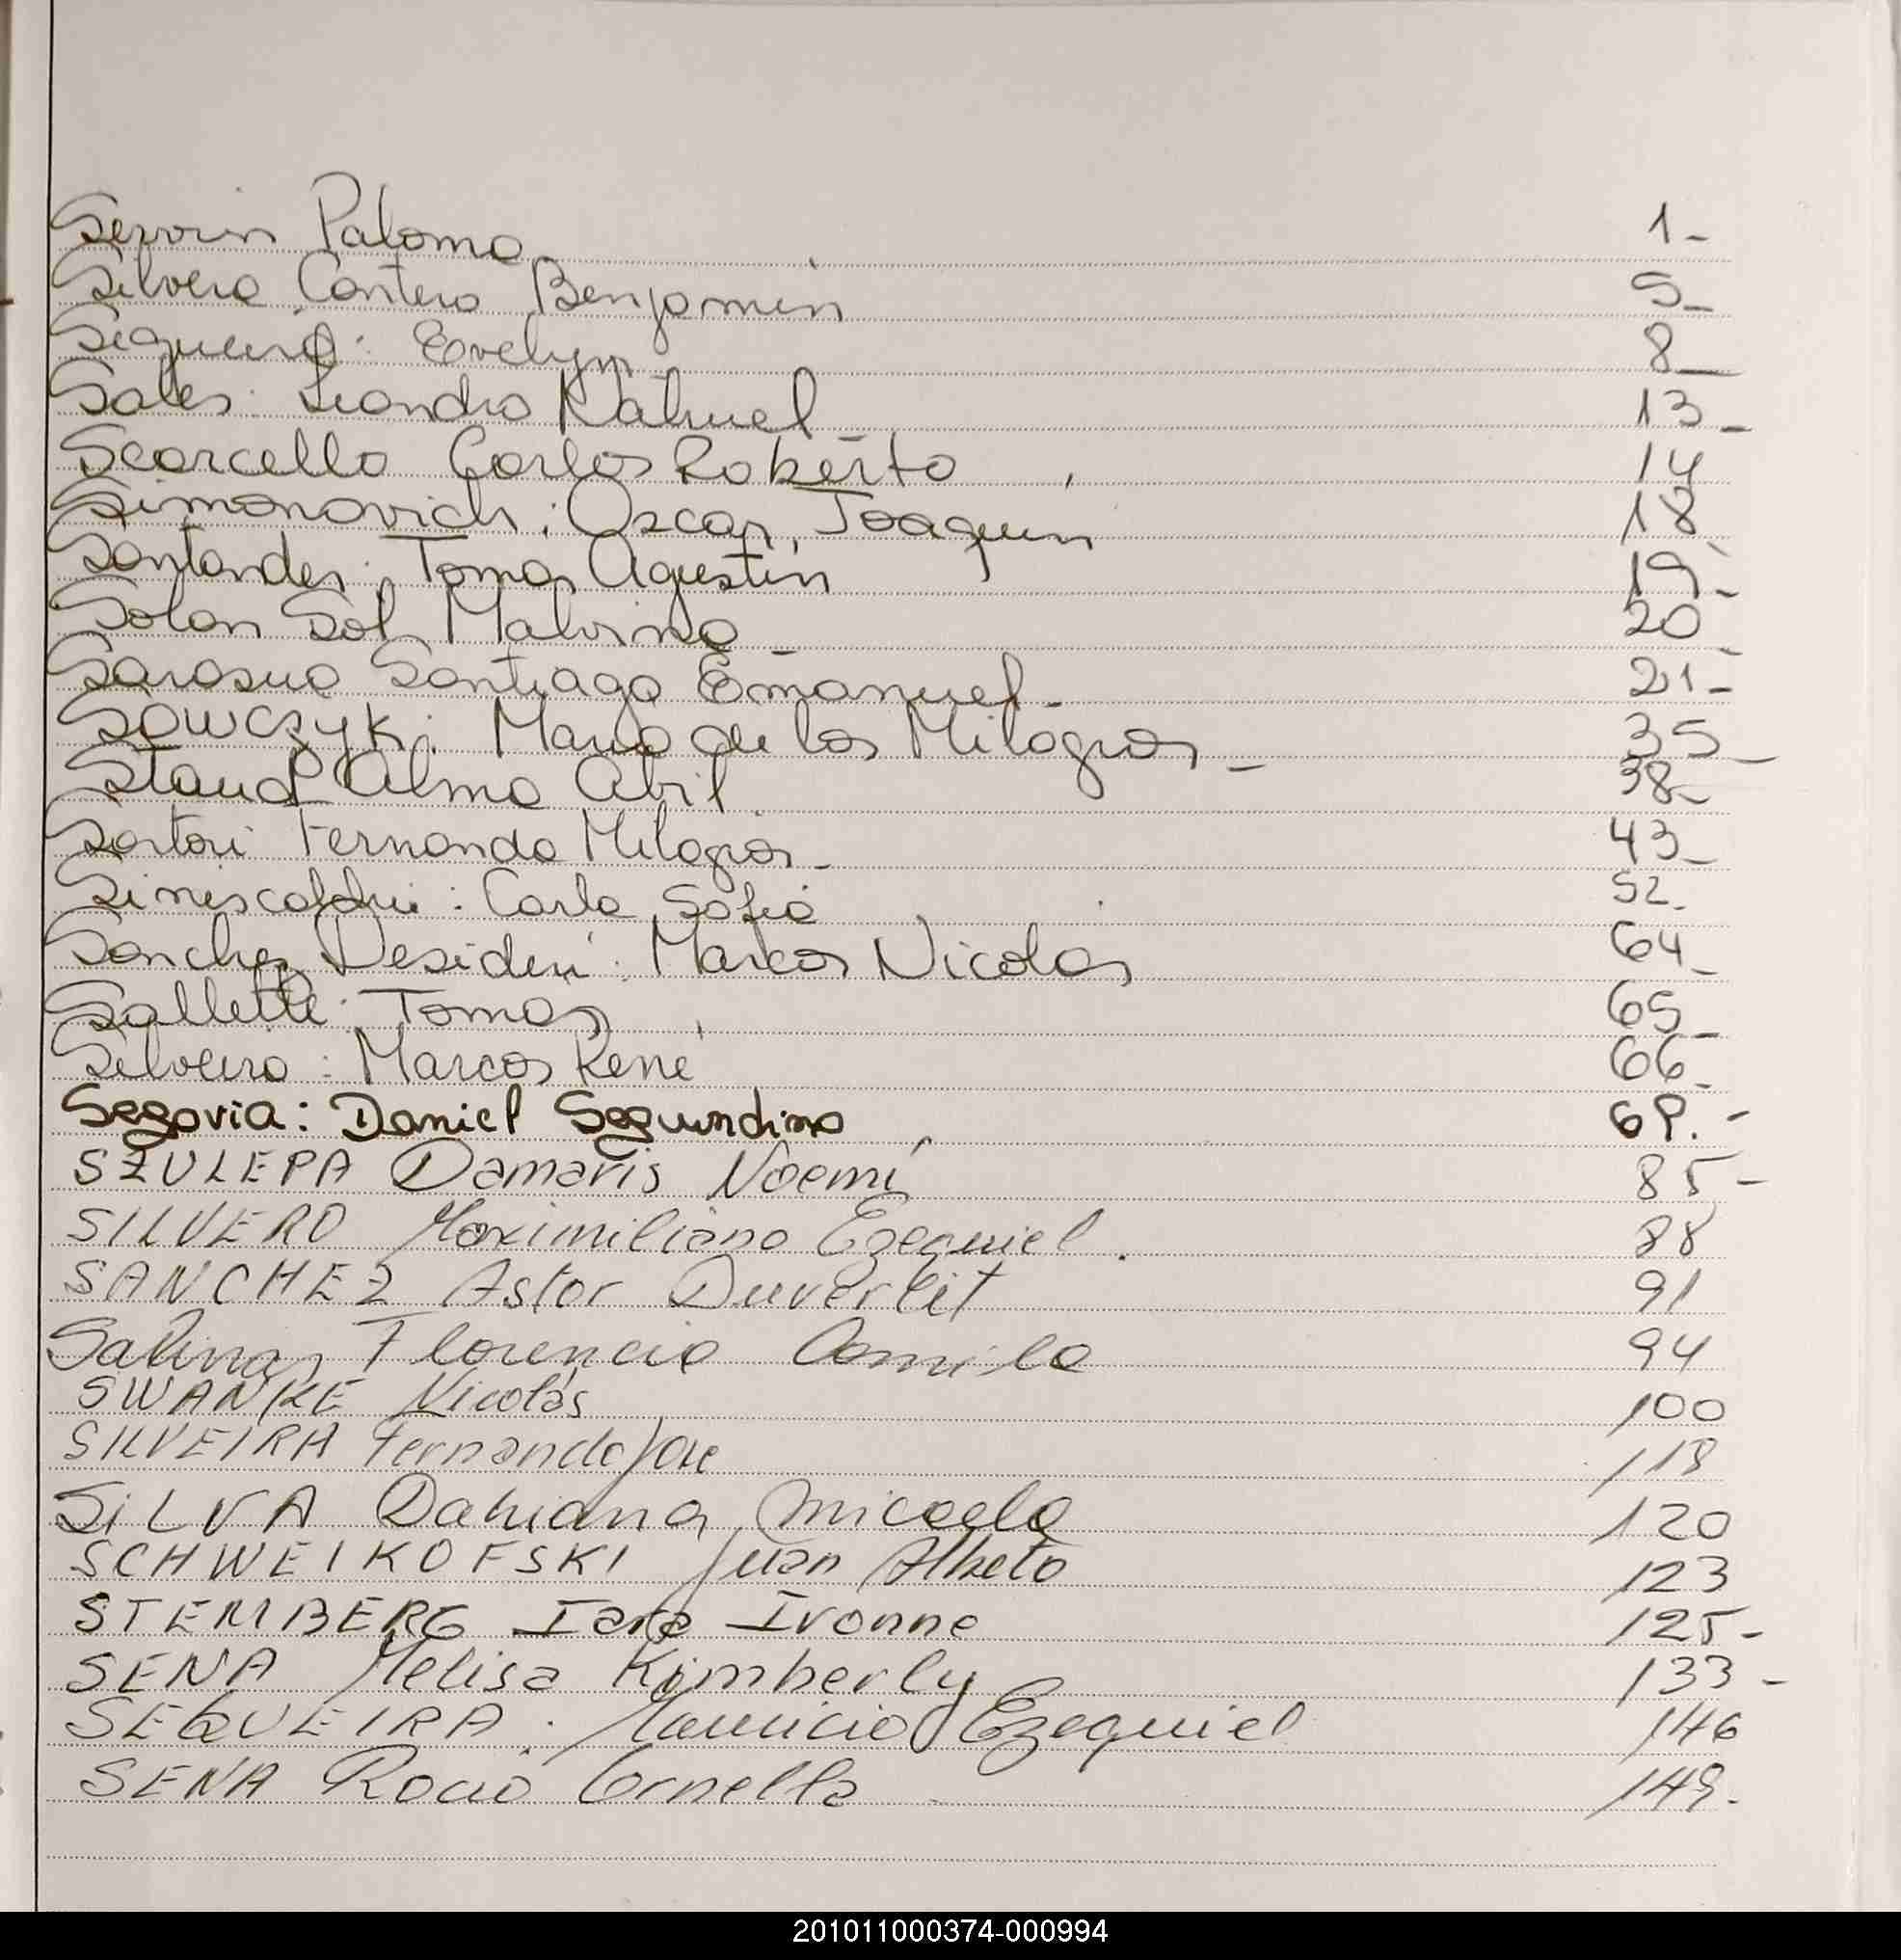 Servin Paloma 1-
Silvero Cantero Benjamin 5-
Sequeira: Evelyn 8-
Sales: Leandro Nahuel 13-
Scarcella Carlos Roberto 14
Simonovich: Oscar, Joaquin 18
Santander, Tomas Agustin 19-
Solan Sol Malvina 20-
Sarasua Santiago Emanuel 21-
SOWCZYK: Maria de los Milagros - 35-
Staud Alma Abril 38-
Sartori Fernanda Milagros - 43-
Siniscalchi: Carla Sofia 52-
Sanchez Desideri: Marcos Nicolas 64-
Salletti: Tomas 65-
Silveira: Marcos René 66-
Segovia: Daniel Segundino 69.-
SZULEPA Damaris Noemí 85-
SILVERO Maximiliano Ezequiel. 88
SANCHEZ Astor 91
Salinas Florencia Camila 94
SWANKE Nicolás 100
SILVEIRA Fernando José 118
SILVA Dahiana Micaela 120
SCHWEIKOFSKI Juan Alberto 123
STEMBERG Iara Ivonne 125-
SENA Melisa Kimberly 133-
SEQUEIRA. Mauricio Ezequiel 146
SENA Rocio Ornella 149.
201011000374-000994